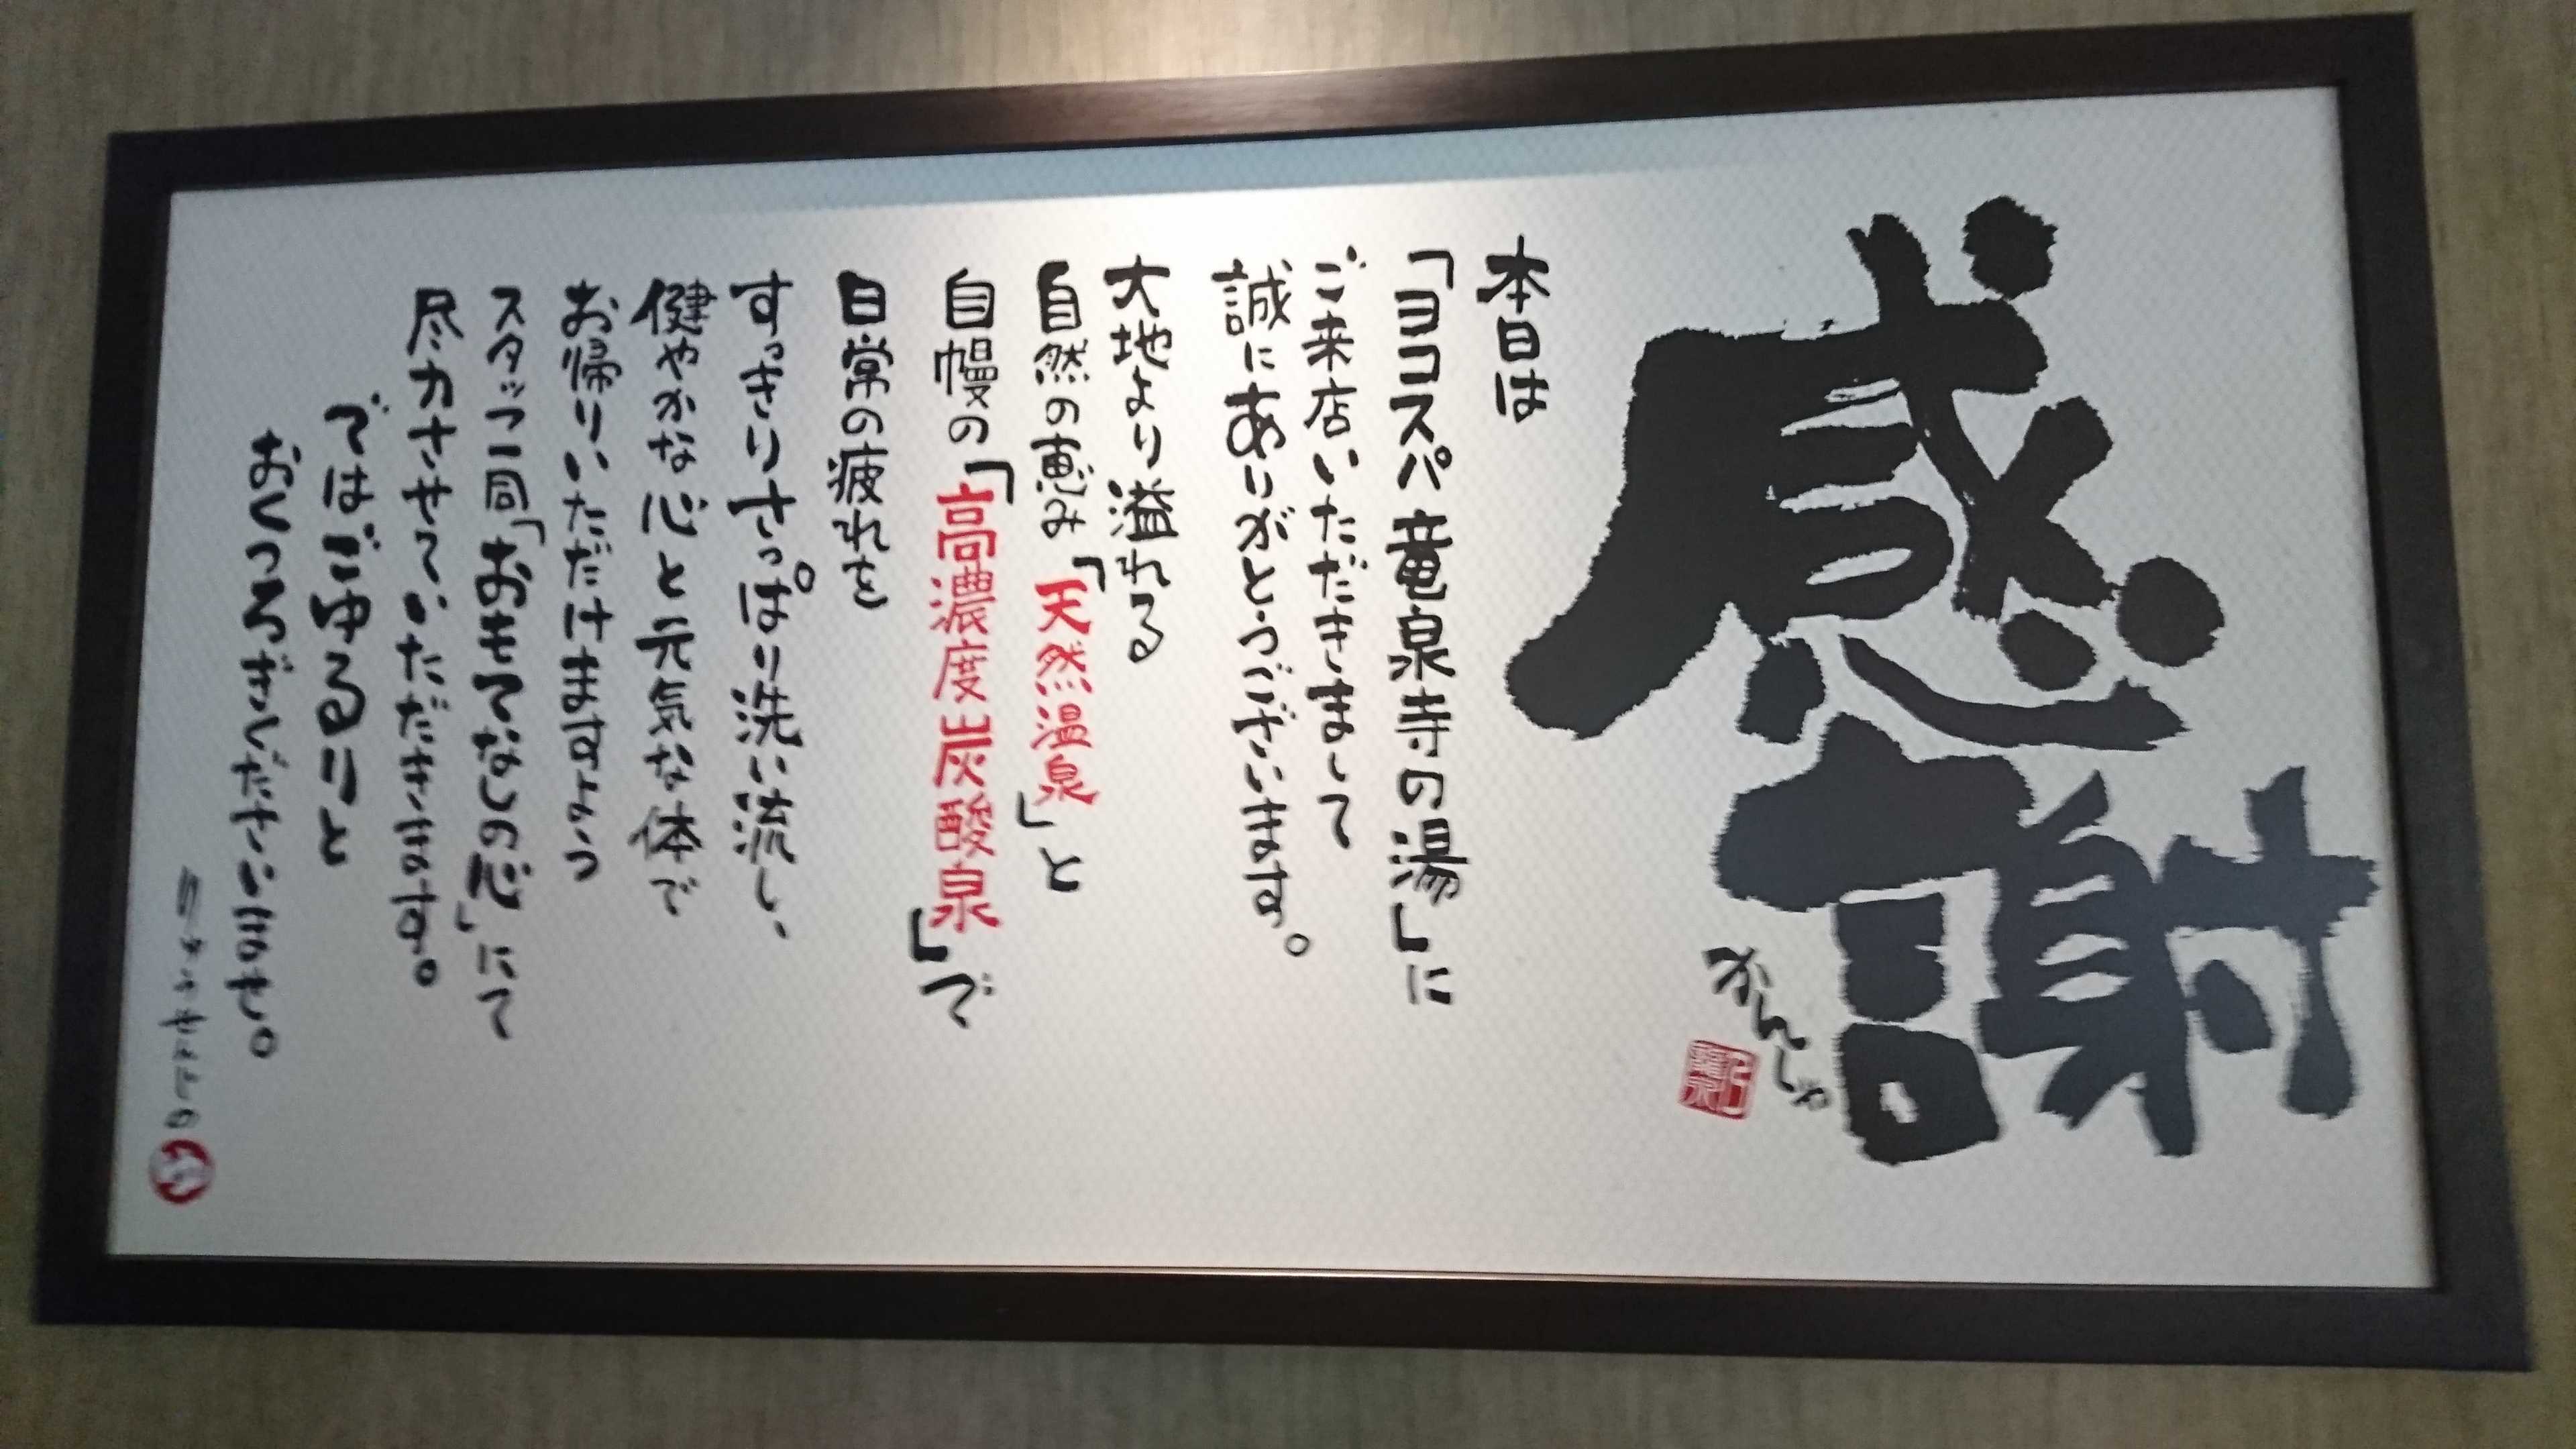 感謝
かんしゃ
本日は
「ヨコスパ 竜泉寺の湯」に
ご来店いただきまして
誠にありがとうございます。
大地より溢れる
自然の恵み「天然温泉」と
自慢の「高濃度炭酸泉」で
日常の疲れを
すっきりさっぱり洗い流し、
健やかな心と元気な体で
お帰りいただけますよう
スタッフ一同「おもてなしの心」にて
尽力させていただきます。
ではごゆるりと
おくつろぎくださいませ。